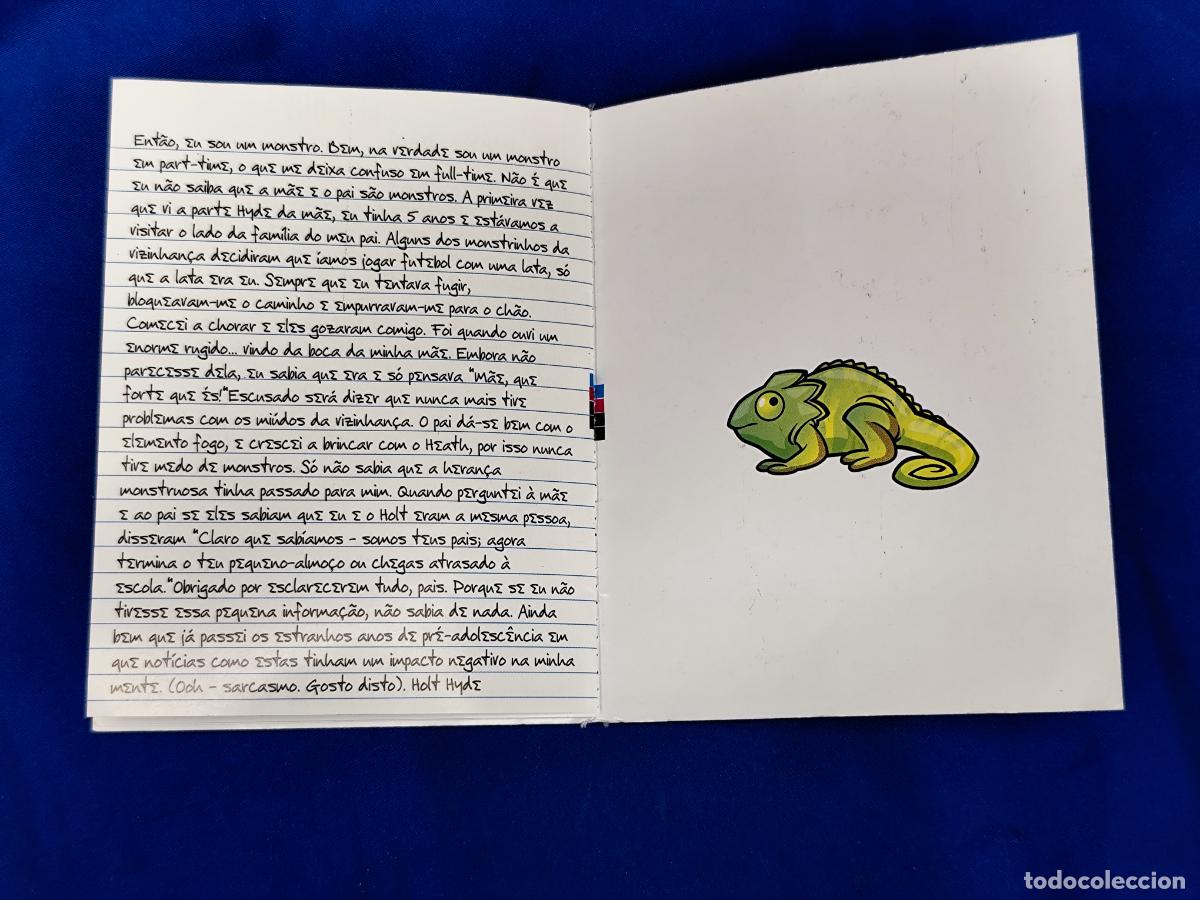 Então, eu sou um monstro. Bem, na verdade sou um monstro
em part-time, o que me deixa confuso em full-time. Não é que
eu não saiba que a mãe e o pai são monstros. A primeira vez
que vi a parte Hyde da mãe, eu tinha 5 anos e estávamos a
visitar o lado da família do meu pai. Alguns dos monstrinhos da
vizinhança decidiram que íamos jogar futebol com uma lata, só
que a lata era eu. Sempre que eu tentava fugir,
bloqueavam-me o caminho e empurravam-me para o chão.
Comecei a chorar e eles gozaram comigo. Foi quando ouvi um
enorme rugido... vindo da boca da minha mãe. Embora não
parecesse dela, eu sabia que era e só pensava "Mãe, que
forte que és!"Escusado será dizer que nunca mais tive
problemas com os miúdos da vizinhança. O pai dá-se bem com o
elemento fogo, e cresci a brincar com o Heath, por isso nunca
tive medo de monstros. Só não sabia que a herança
monstruosa tinha passado para mim. Quando perguntei à mãe
e ao pai se eles sabiam que eu e o Holt eram a mesma pessoa,
disseram "Claro que sabíamos - somos teus pais; agora
termina o teu pequeno-almoço ou chegas atrasado à
escola."Obrigado por esclarecerem tudo, pais. Porque se eu não
tivesse essa pequena informação, não sabia de nada. Ainda
bem que já passei os estranhos anos de pré-adolescência em
que notícias como estas tinham um impacto negativo na minha
mente. (Ooh - sarcasmo. Gosto disto). Holt Hyde
todocoleccion